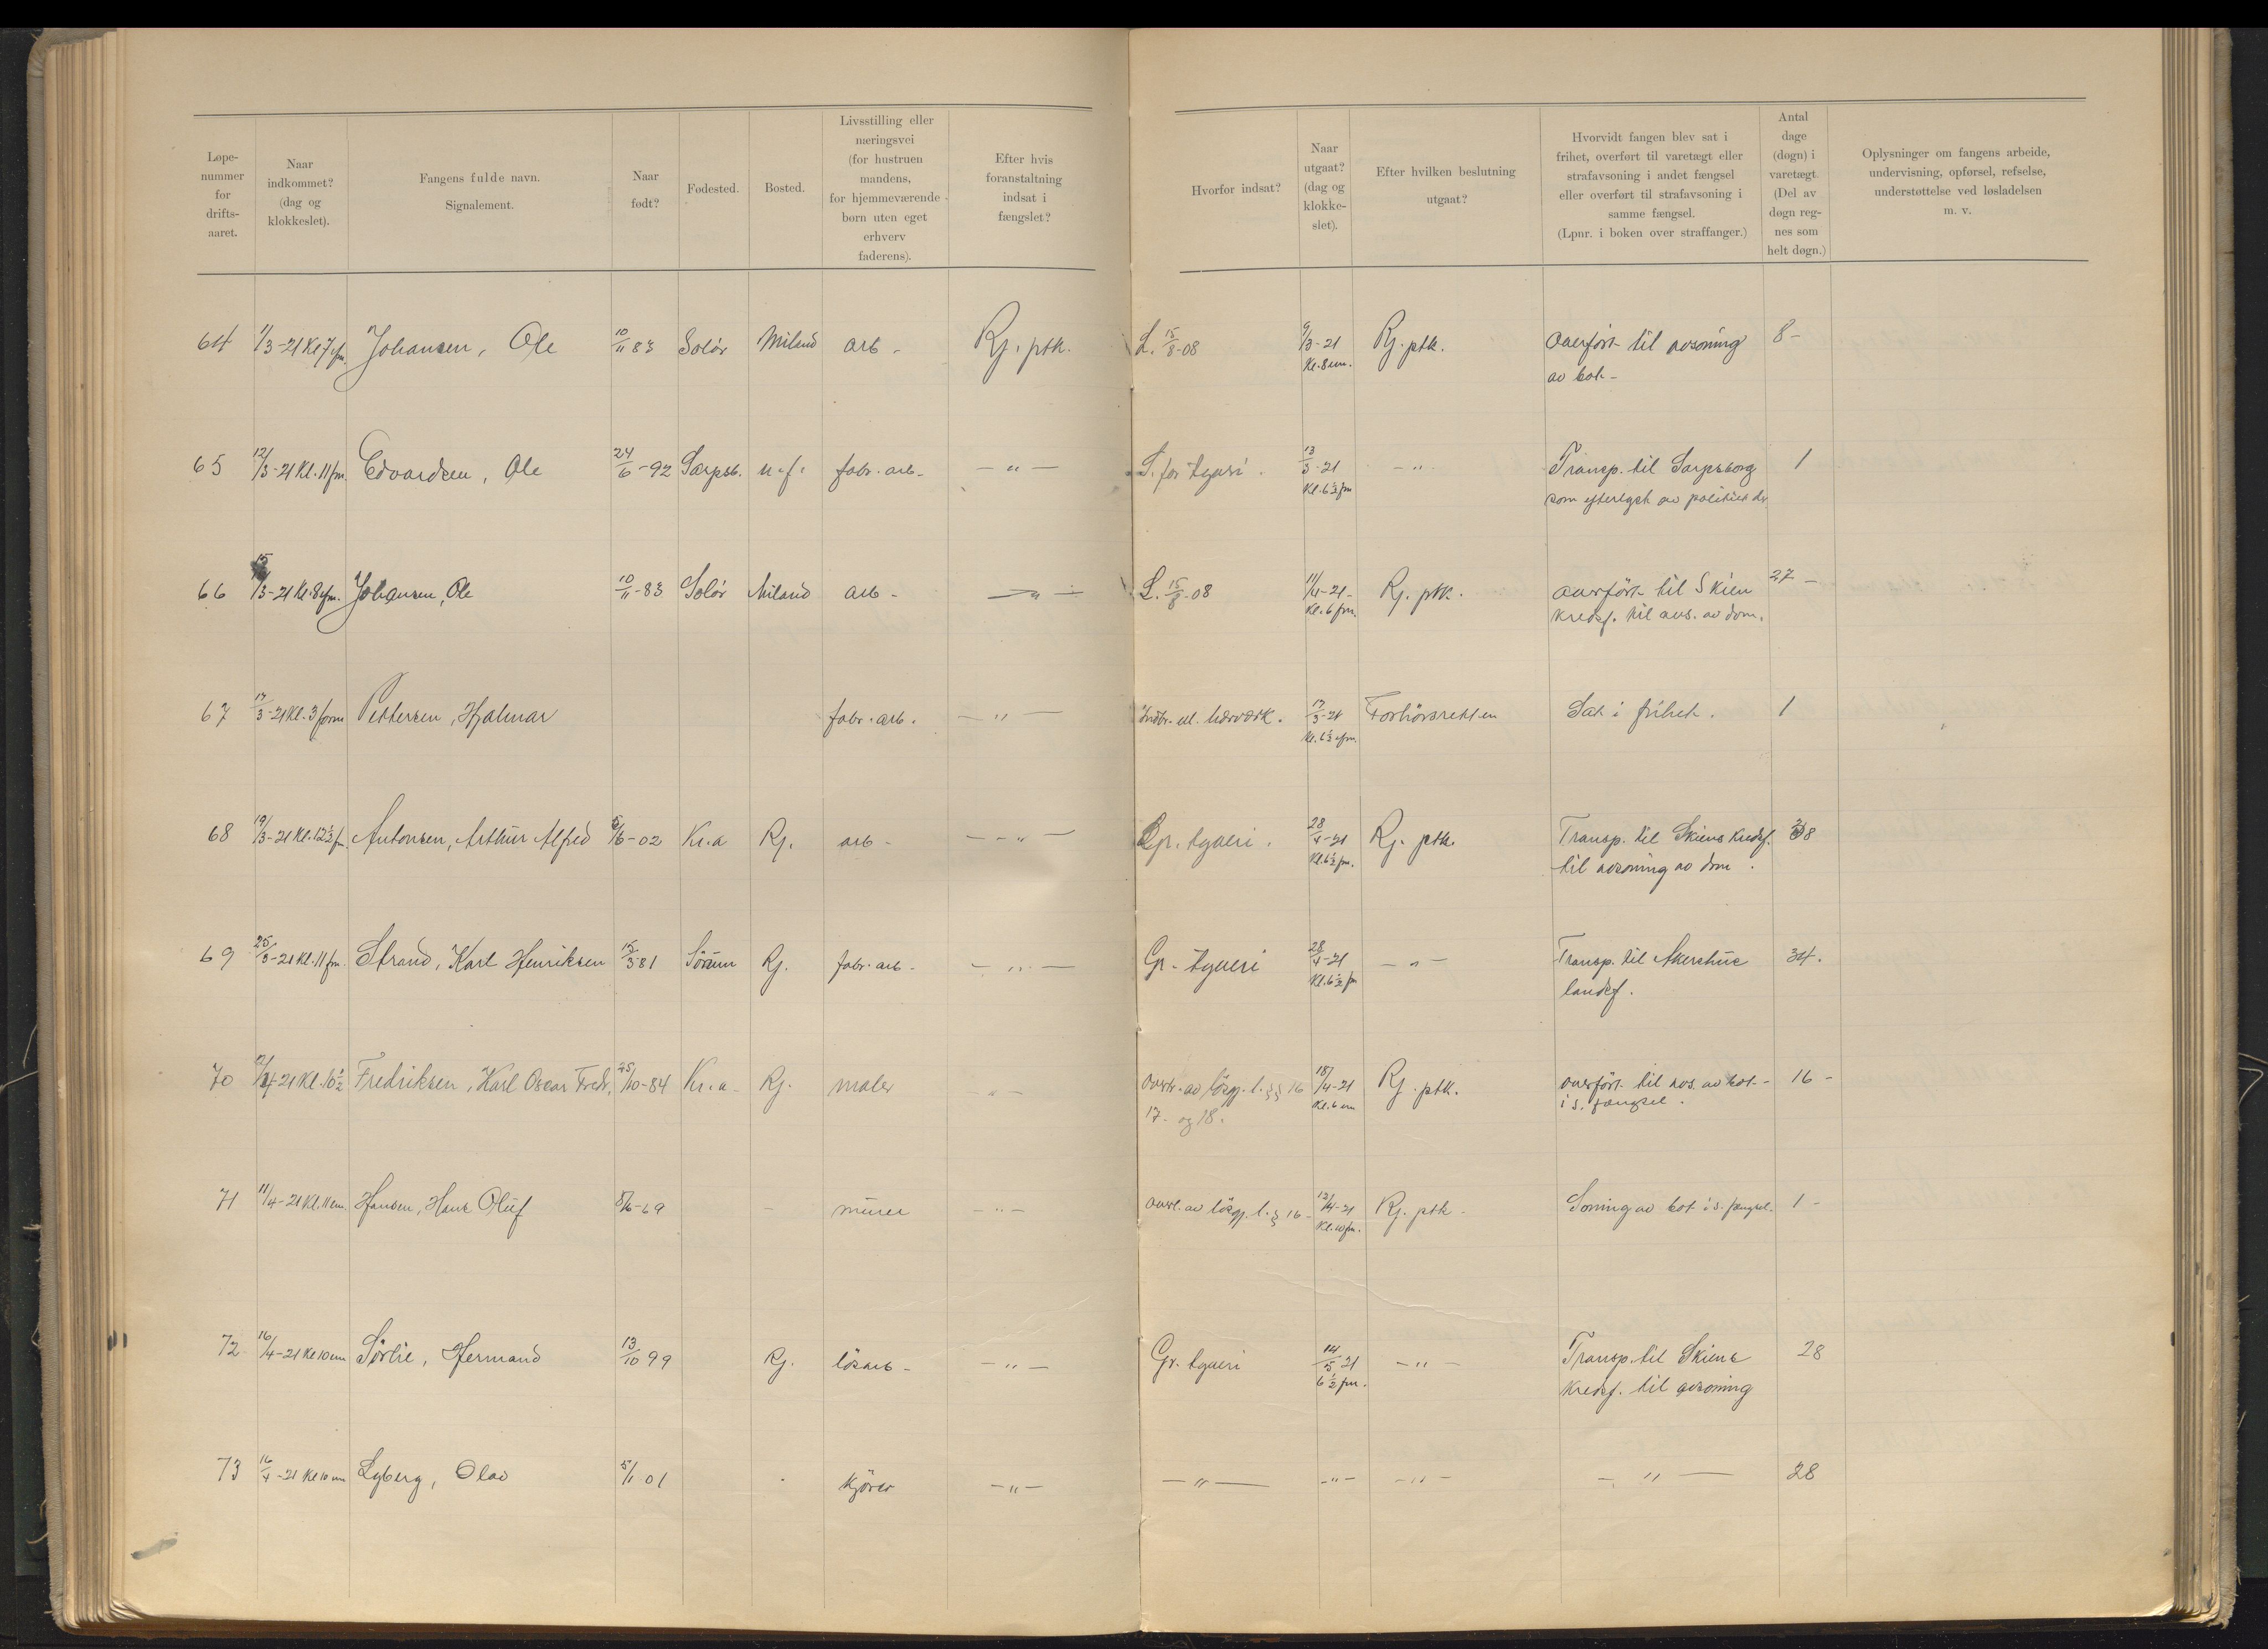 Løpe-
nummer
for
drifts-
aaret.
Naar
indkommet?
(dag og
klokkeslet).
Fangens fulde navn.
Signalement.
Naar
født?
Fødested.
Bosted.
Livsstilling eller
næringsvei
(for hustruen
mandens,
for hjemmeværende
børn uten eget
erhverv
faderens).
Efter hvis
foranstaltning
indsat i
fængslet?
Hvorfor indsat?
Naar
utgaat?
(dag og
klokke-
slet).
Efter hvilken beslutning
utgaat?
Hvorvidt fangen blev sat i
frihet, overført til varetægt eller
strafavsoning i andet fængsel
eller overført til strafavsoning i
samme fængsel.
(Lpnr. i boken over straffanger.)
Antal
dage
(døgn) i
varetægt.
(Del av
døgn reg-
nes som
helt døgn.)
Oplysninger om fangens arbeide,
undervisning, opførsel, refselse,
understøttelse ved løsladelsen
m. v.
64 1/3-21 Kl 7 efm. Johansen, Ole 10/11 83 Solör Miland arb - Rj. ptk. L. 15/8-08 9/3-21 Rj. ptk. Overfört til avsoning 8-
Kl. 8 em. av bot-
65 12/3-21 Kl. 11 fm. Edvardsen, Ole 24/6-92 Sarpsb. u.f. fabr. arb- -"- S. for tyveri. 13/3-21 -"- Transp. til Sarpsborg 1
Kl. 6½ fm som efterlyst av politiet der
66 15/3-21 Kl. 8 efm. Johansen, Ole 10/11-83 Solör Miland arb- -"- L. 15/8-08 11/4-21- Rj. ptk. overfört til Skien 27-
Kl. 6 fm. kredsf. til avs. av dom.
67 17/3-21 Kl. 3 form Pettersen, Hjalmar fabr. arb. -"- 17/3-21 Forhörsretten Sat i frihet. 1
Kl. 6½ efm.
68 19/3-21 Kl. 12½ fm. Antonsen, Arthur Alfred 5/6-02 Kr.a Rj. arb- -"- Gr. tyveri. 28/4-21 Rj. ptk. Transp. til Skiens kredsf.
Kl. 6½ fm. til avsoning av dom.
69 25/3-21 Kl. 11 fm. Strand, Karl Henriksen 15/3 81 Sörum Rj. fabr. arb- -"- Gr. tyveri 28/4-21 -"- Transp. til Akershus 34.
Kl. 6½ fm landsf.
70 Fredriksen, Karl Oscar Fredr. 25/10-84 Kr.a- Rj. maler -"- overtr. av lösgj. l. §§ 16 18/4-21 Rj. ptk. overfört til avs. av bot- 16-
17- og 18. Kl. 6 em i s. fængsel.
71 11/4-21 Kl. 11 em. Hansen, Hans Oluf 8/6-69 - murer -"- overt. av lösgj. l. § 16- 12/4-21 Rj. ptk- Soning av bot i s. fængsel. 1-
Kl. 10 fm.
72 16/4-21 Kl 10 em Sörlie, Hermand 13/10 99 Rj. lösarb- -"- Gr. tyveri 14/5 21 -"- Transp. til Skiens 28
6½ fm. kredsf. til avsoning
73 16/4-21 Kl 10 em Lyberg, Olav 5/11 01 kjörer -"- -"- -"- -"- -"- 28